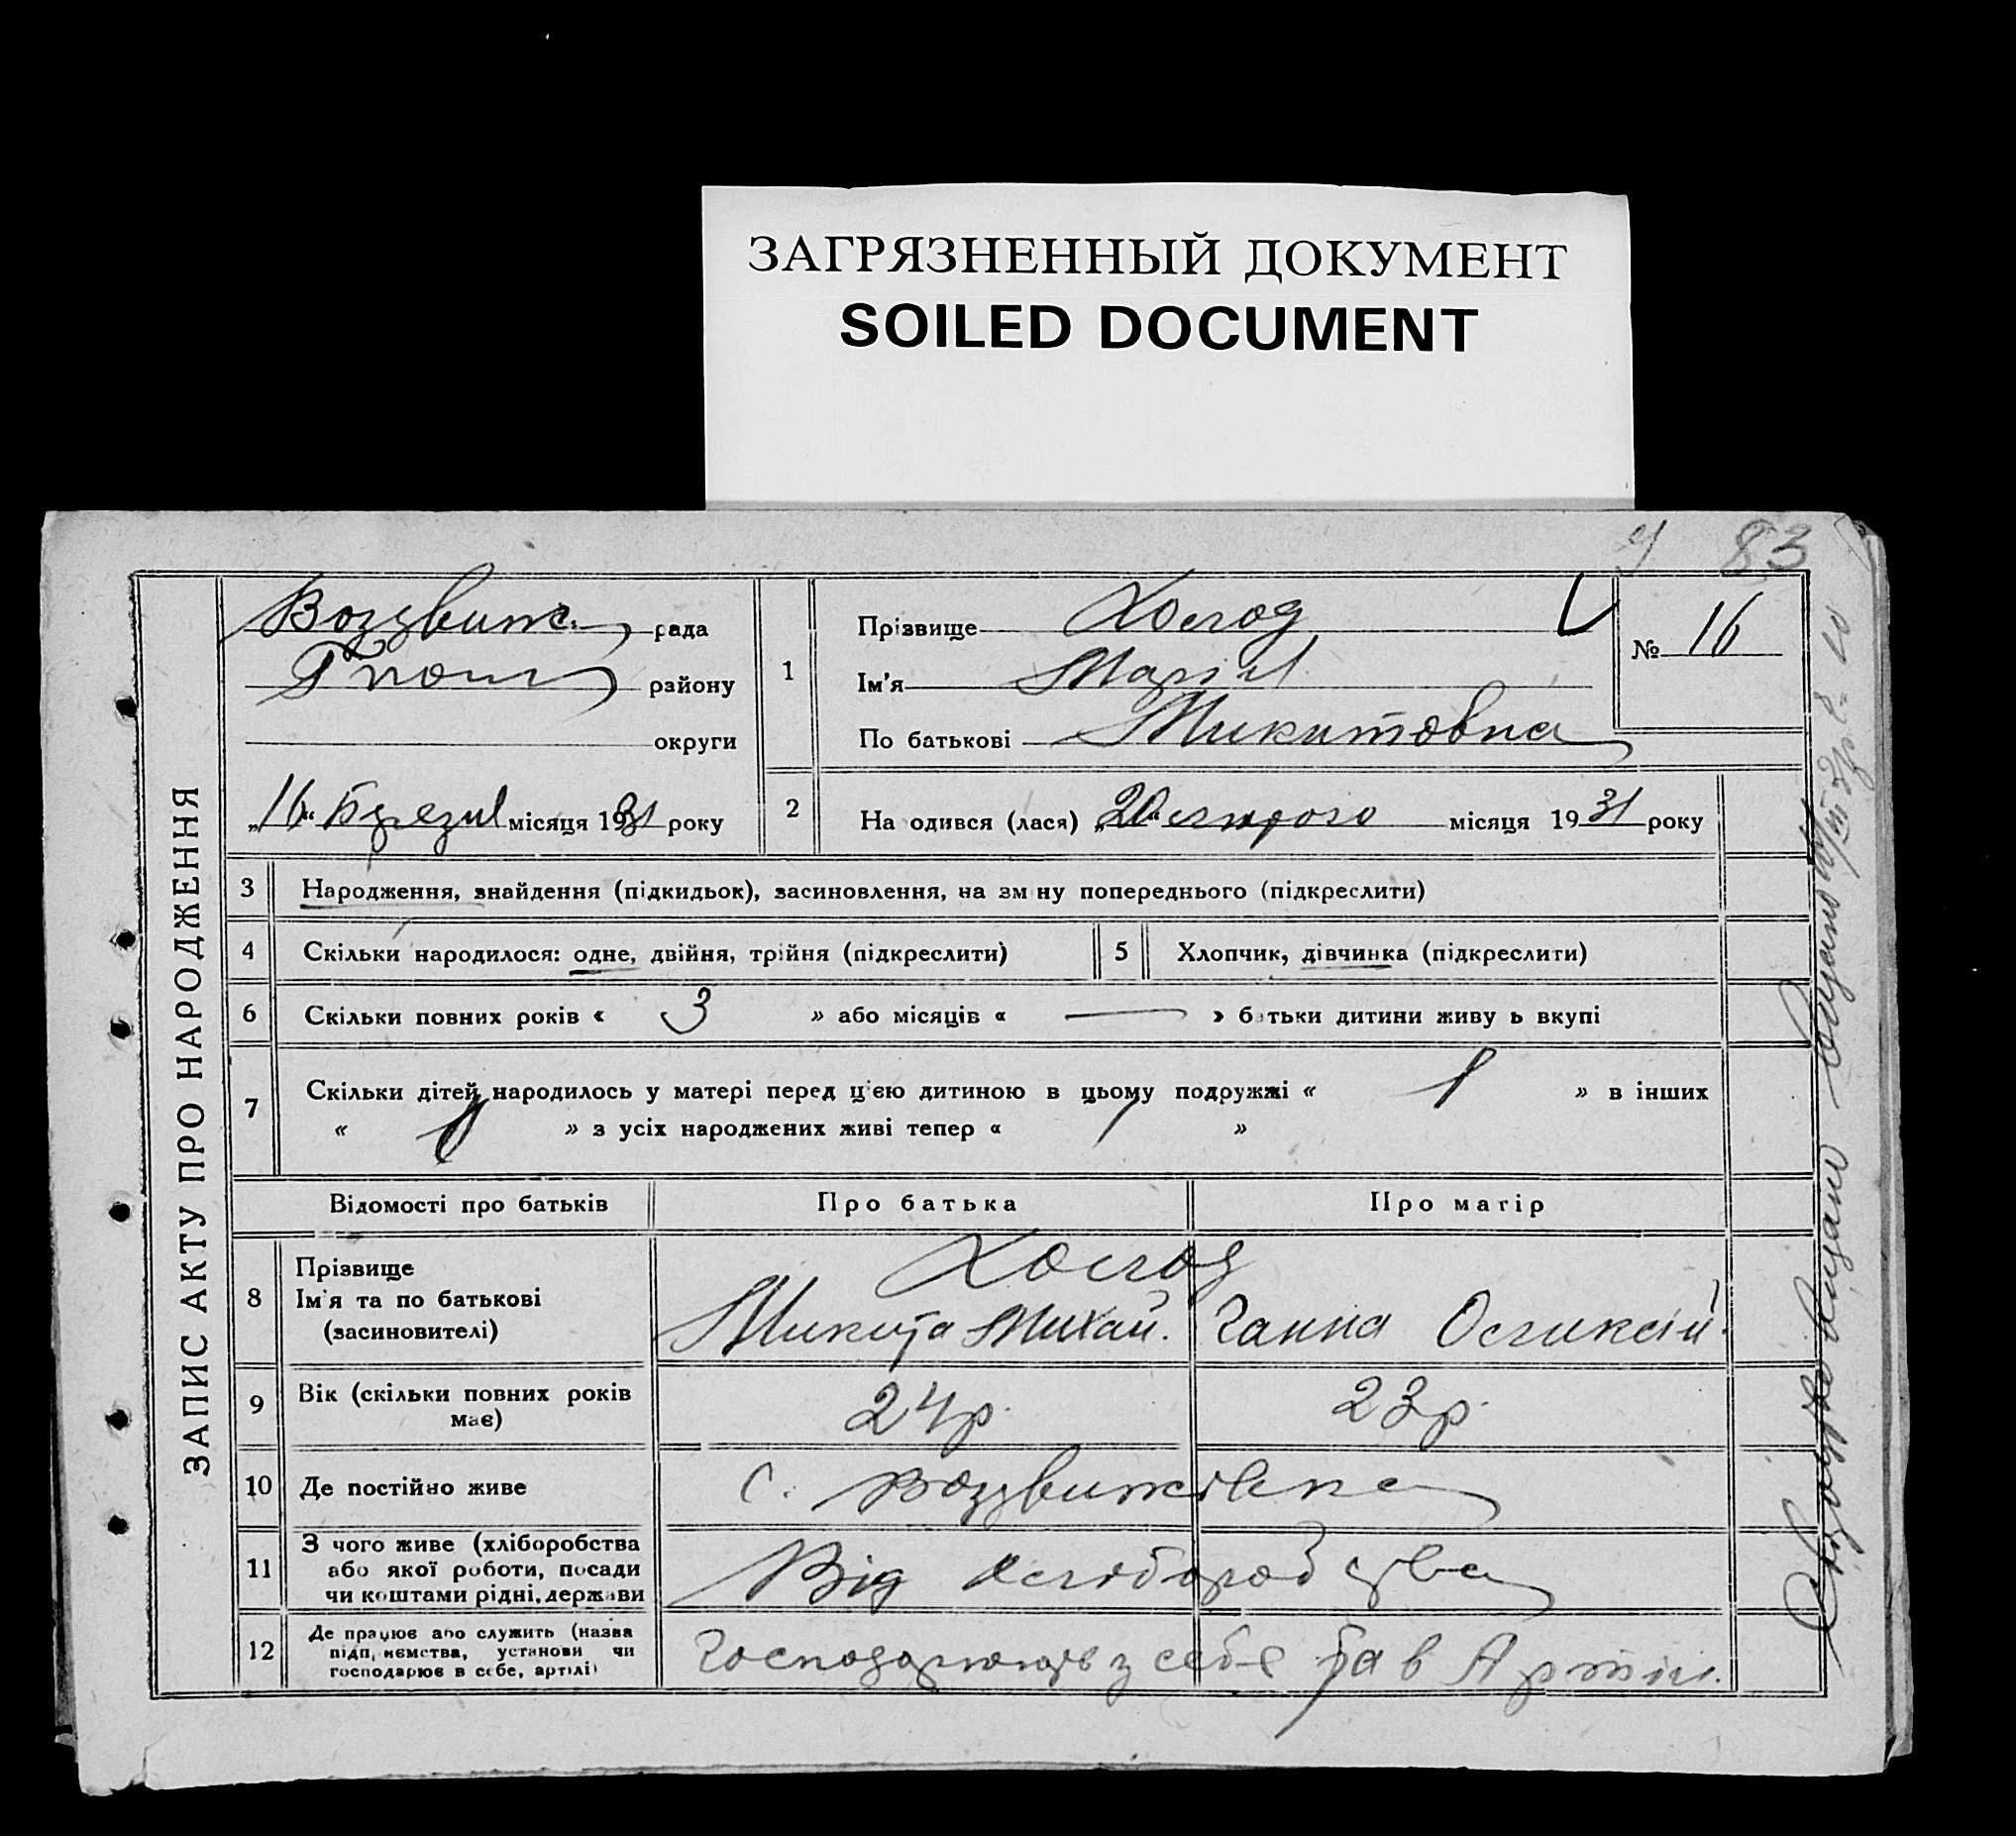 ЗАГРЯЗНЕННЫЙ ДОКУМЕНТ
SOILED DOCUMENT
83
ЗАПИС АКТУ ПРО НАРОДЖЕННЯ
Воздвиж. рада
району
округи
"16" Березня місяця 1931 року
1
Прізвище Холод
Ім'я Марія
По батькові Микитовна
№ 16
2 На одився (лася) "20" лютого місяця 1931 року
3 Народження, знайдення (підкидьок), засиновлення, на зм ну попереднього (підкреслити)
4 Скільки народилося: одне, двійня, трійня (підкреслити)
5 Хлопчик, дівчинка (підкреслити)
6 Скільки повних років « 3 » або місяців « — » батьки дитини живу ь вкупі
7 Скільки дітей народилось у матері перед ц'єю дитиною в цьому подружжі « 1 » в інших
« » з усіх народжених живі тепер « 1 »
Відомості про батьків Про батька Про матір
8 Прізвище
Ім'я та по батькові
(засиновителі)
Холод
Микита Михай. Ганна Оликсій.
9 Вік (скільки повних років
має)
24 р. 23 р.
10 Де постійно живе
с. Воздвижівка
11 З чого живе (хліборобства
або якої роботи, посади
чи коштами рідні, держави
Від хліборобства
12 Де працює або служить (назва
підп, иємства, установи чи
господарює в себе, артілі)
Господарюють у себе та в Артіл.